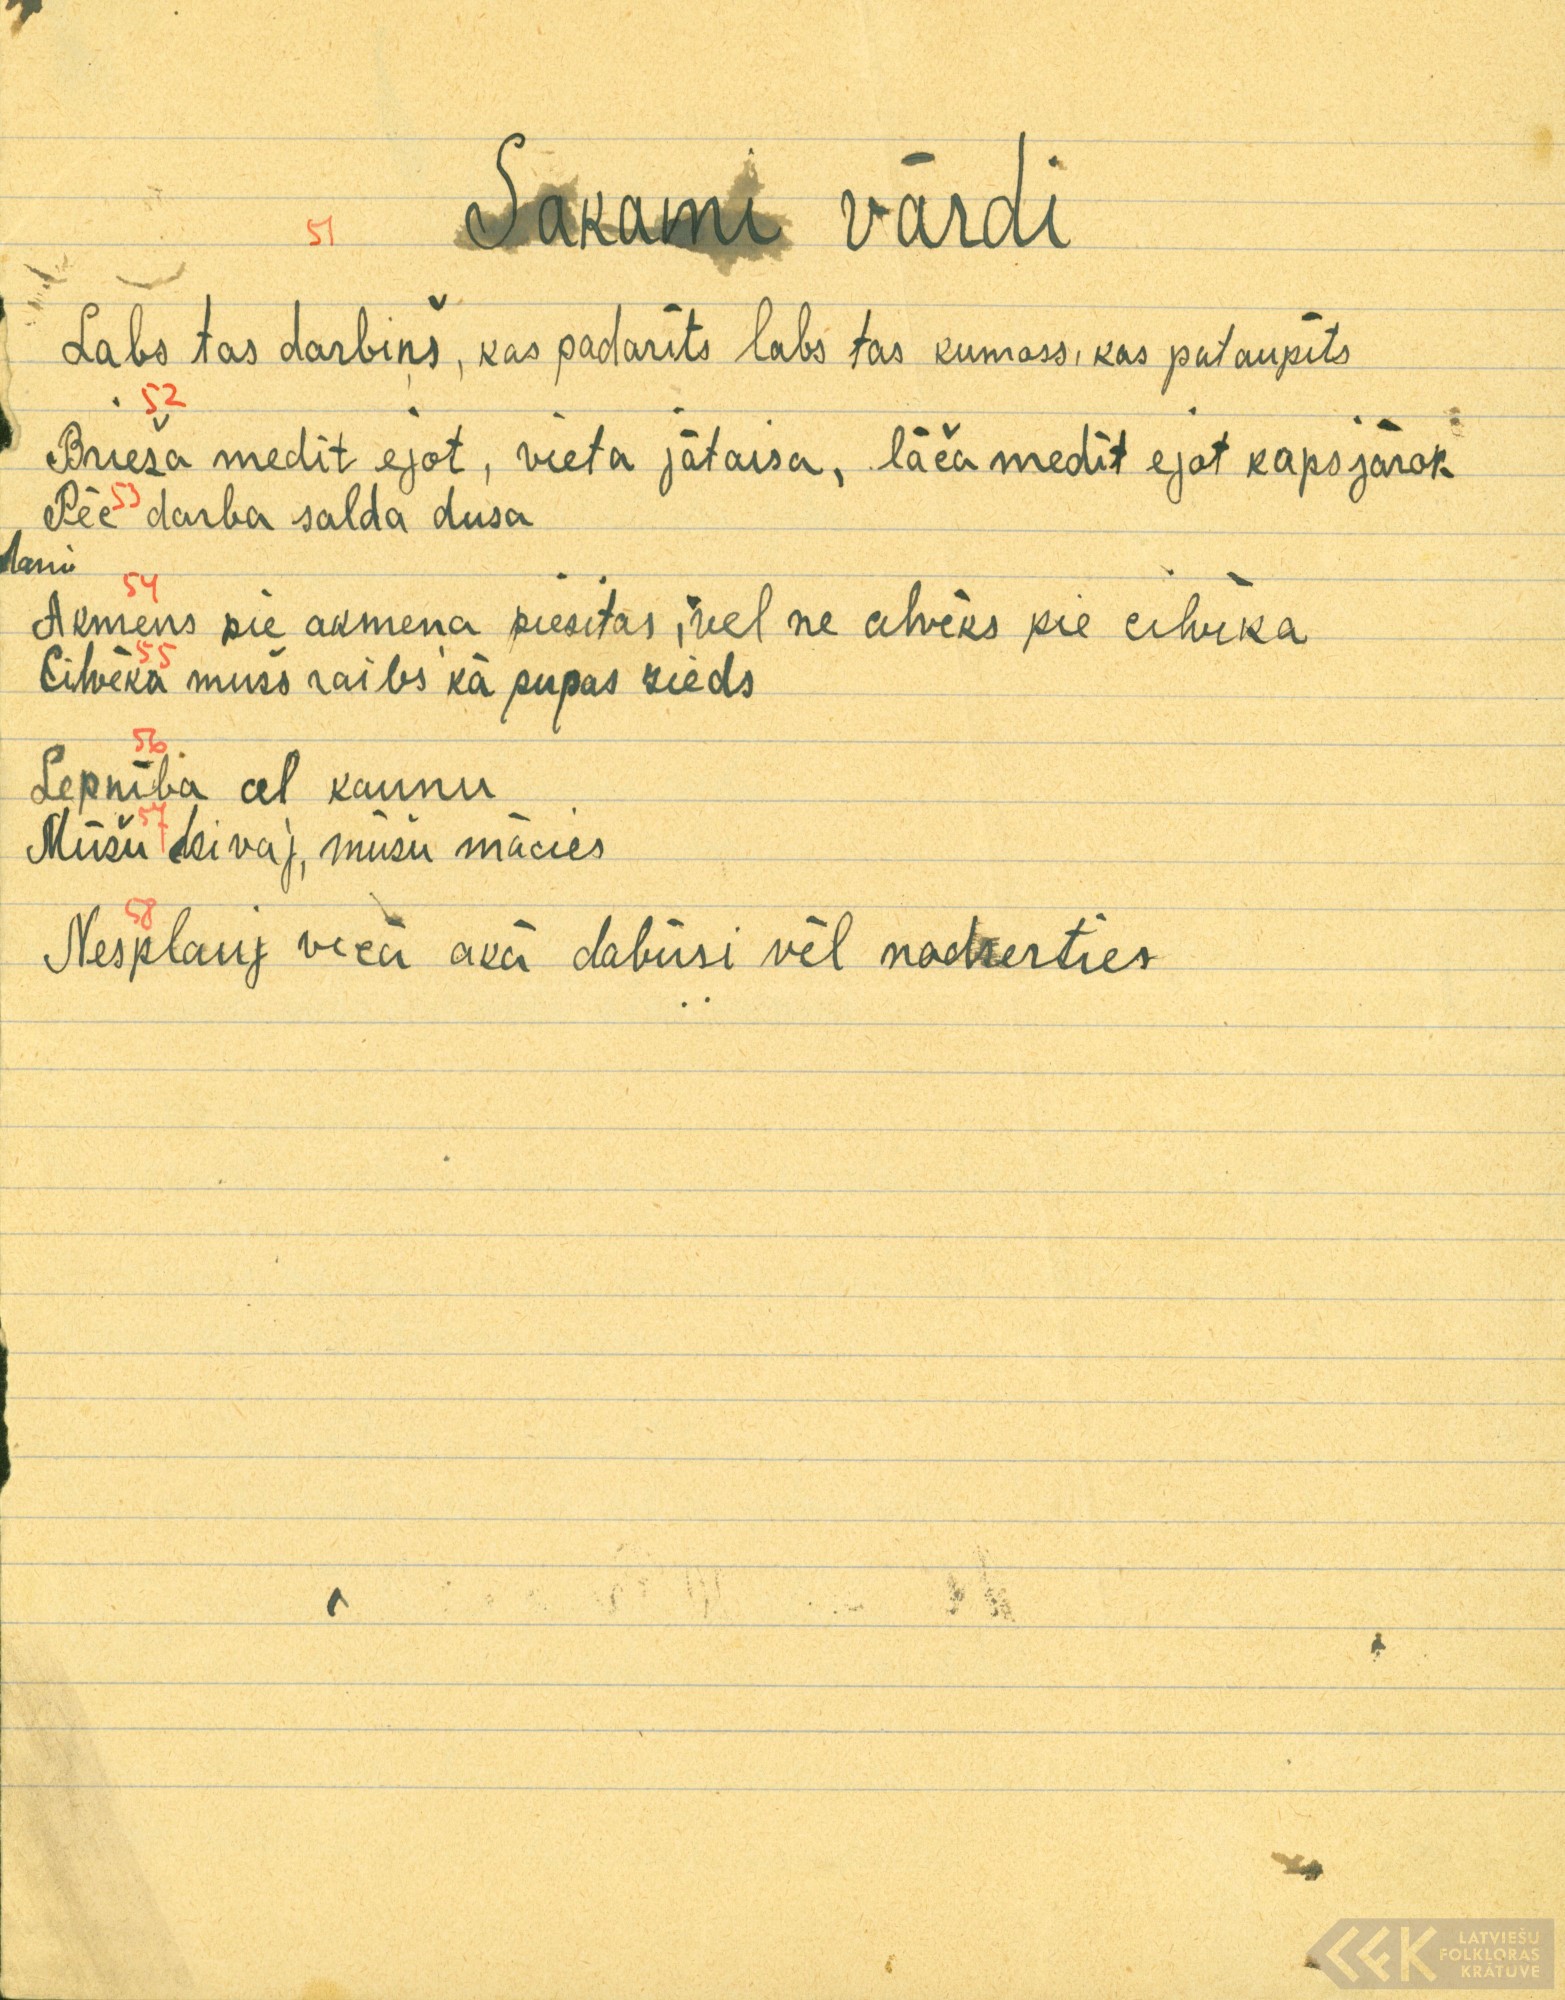 Sakami vārdi
51
Labs tas darbiņš, kas padarīts labs tas kumoss, kas pataupīts
52
Brieža medīt ejot, vieta jātaisa, lāča medīt ejot kaps jārok
53
Pēc darba salda dusa
54
Akmens pie akmeņa piesitas, vel ne cilvēks pie cilvēka
55
Cilvēka mužs raibs kā pupas zieds
56
Lepnība cel kaunu
57
Mūžu dzivaj, mūžu mācies
58
Nesplauj vecā akā dabūsi vēl nodzerties
LATVIEŠU
FOLKLORAS
KRĀTUVE